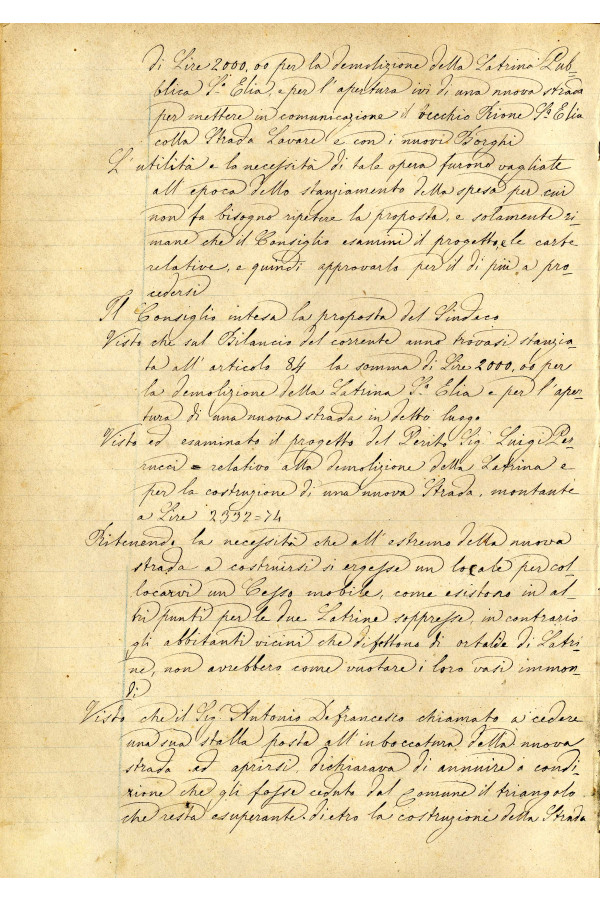 di Lire 2000,00 per la demolizione della Latrina Pub-
blica Sa. Elia, e per l'apertura ivi di una nuova strada
per mettere in comunicazione il vecchio Rione Sa. Elia
colla Strada Lavare e con i nuovi Borghi
L'utilità e la necessità di tale opera furono vagliate
all'epoca dello stanziamento della spesa per cui
non fa bisogno ripetere la proposta, e solamente ri-
mane che il Consiglio esamini il progetto, e le carte
relative, e quindi approvarlo per il di più a pro-
cedersi
Il Consiglio intesa la proposta del Sindaco
Visto che sul Bilancio del corrente anno trovasi stanzia-
ta all'articolo 84 la somma di Lire 2000,00 per
la demolizione della Latrina Sa. Elia e per l'aper-
tura di una nuova strada in detto luogo
Visto ed esaminato il progetto del Perito Sig. Luigi
relativo alla demolizione della Latrina e
per la costruzione di una nuova Strada, montante
a Lire 2332=74
Ritenendo la necessità che all'estremo della nuova
strada a costruirsi si ergesse un locale per col-
locarvi un Cesso mobile, come esistono in al-
tri punti per le due Latrine soppresse, in contrario
gli abbitanti vicini che difettono di ortalde di Latri-
ne, non avrebbero come vuotare i loro vasi immon-
di
Visto che il Sig. Antonio Defrancesco chiamato a cedere
una sua stalla posta all'inboccatura della nuova
strada ad aprirsi, dichiarava di annuire a condi-
zione che gli fosse ceduto dal Comune il triangolo
che resta esuperante dietro la costruzione della Strada